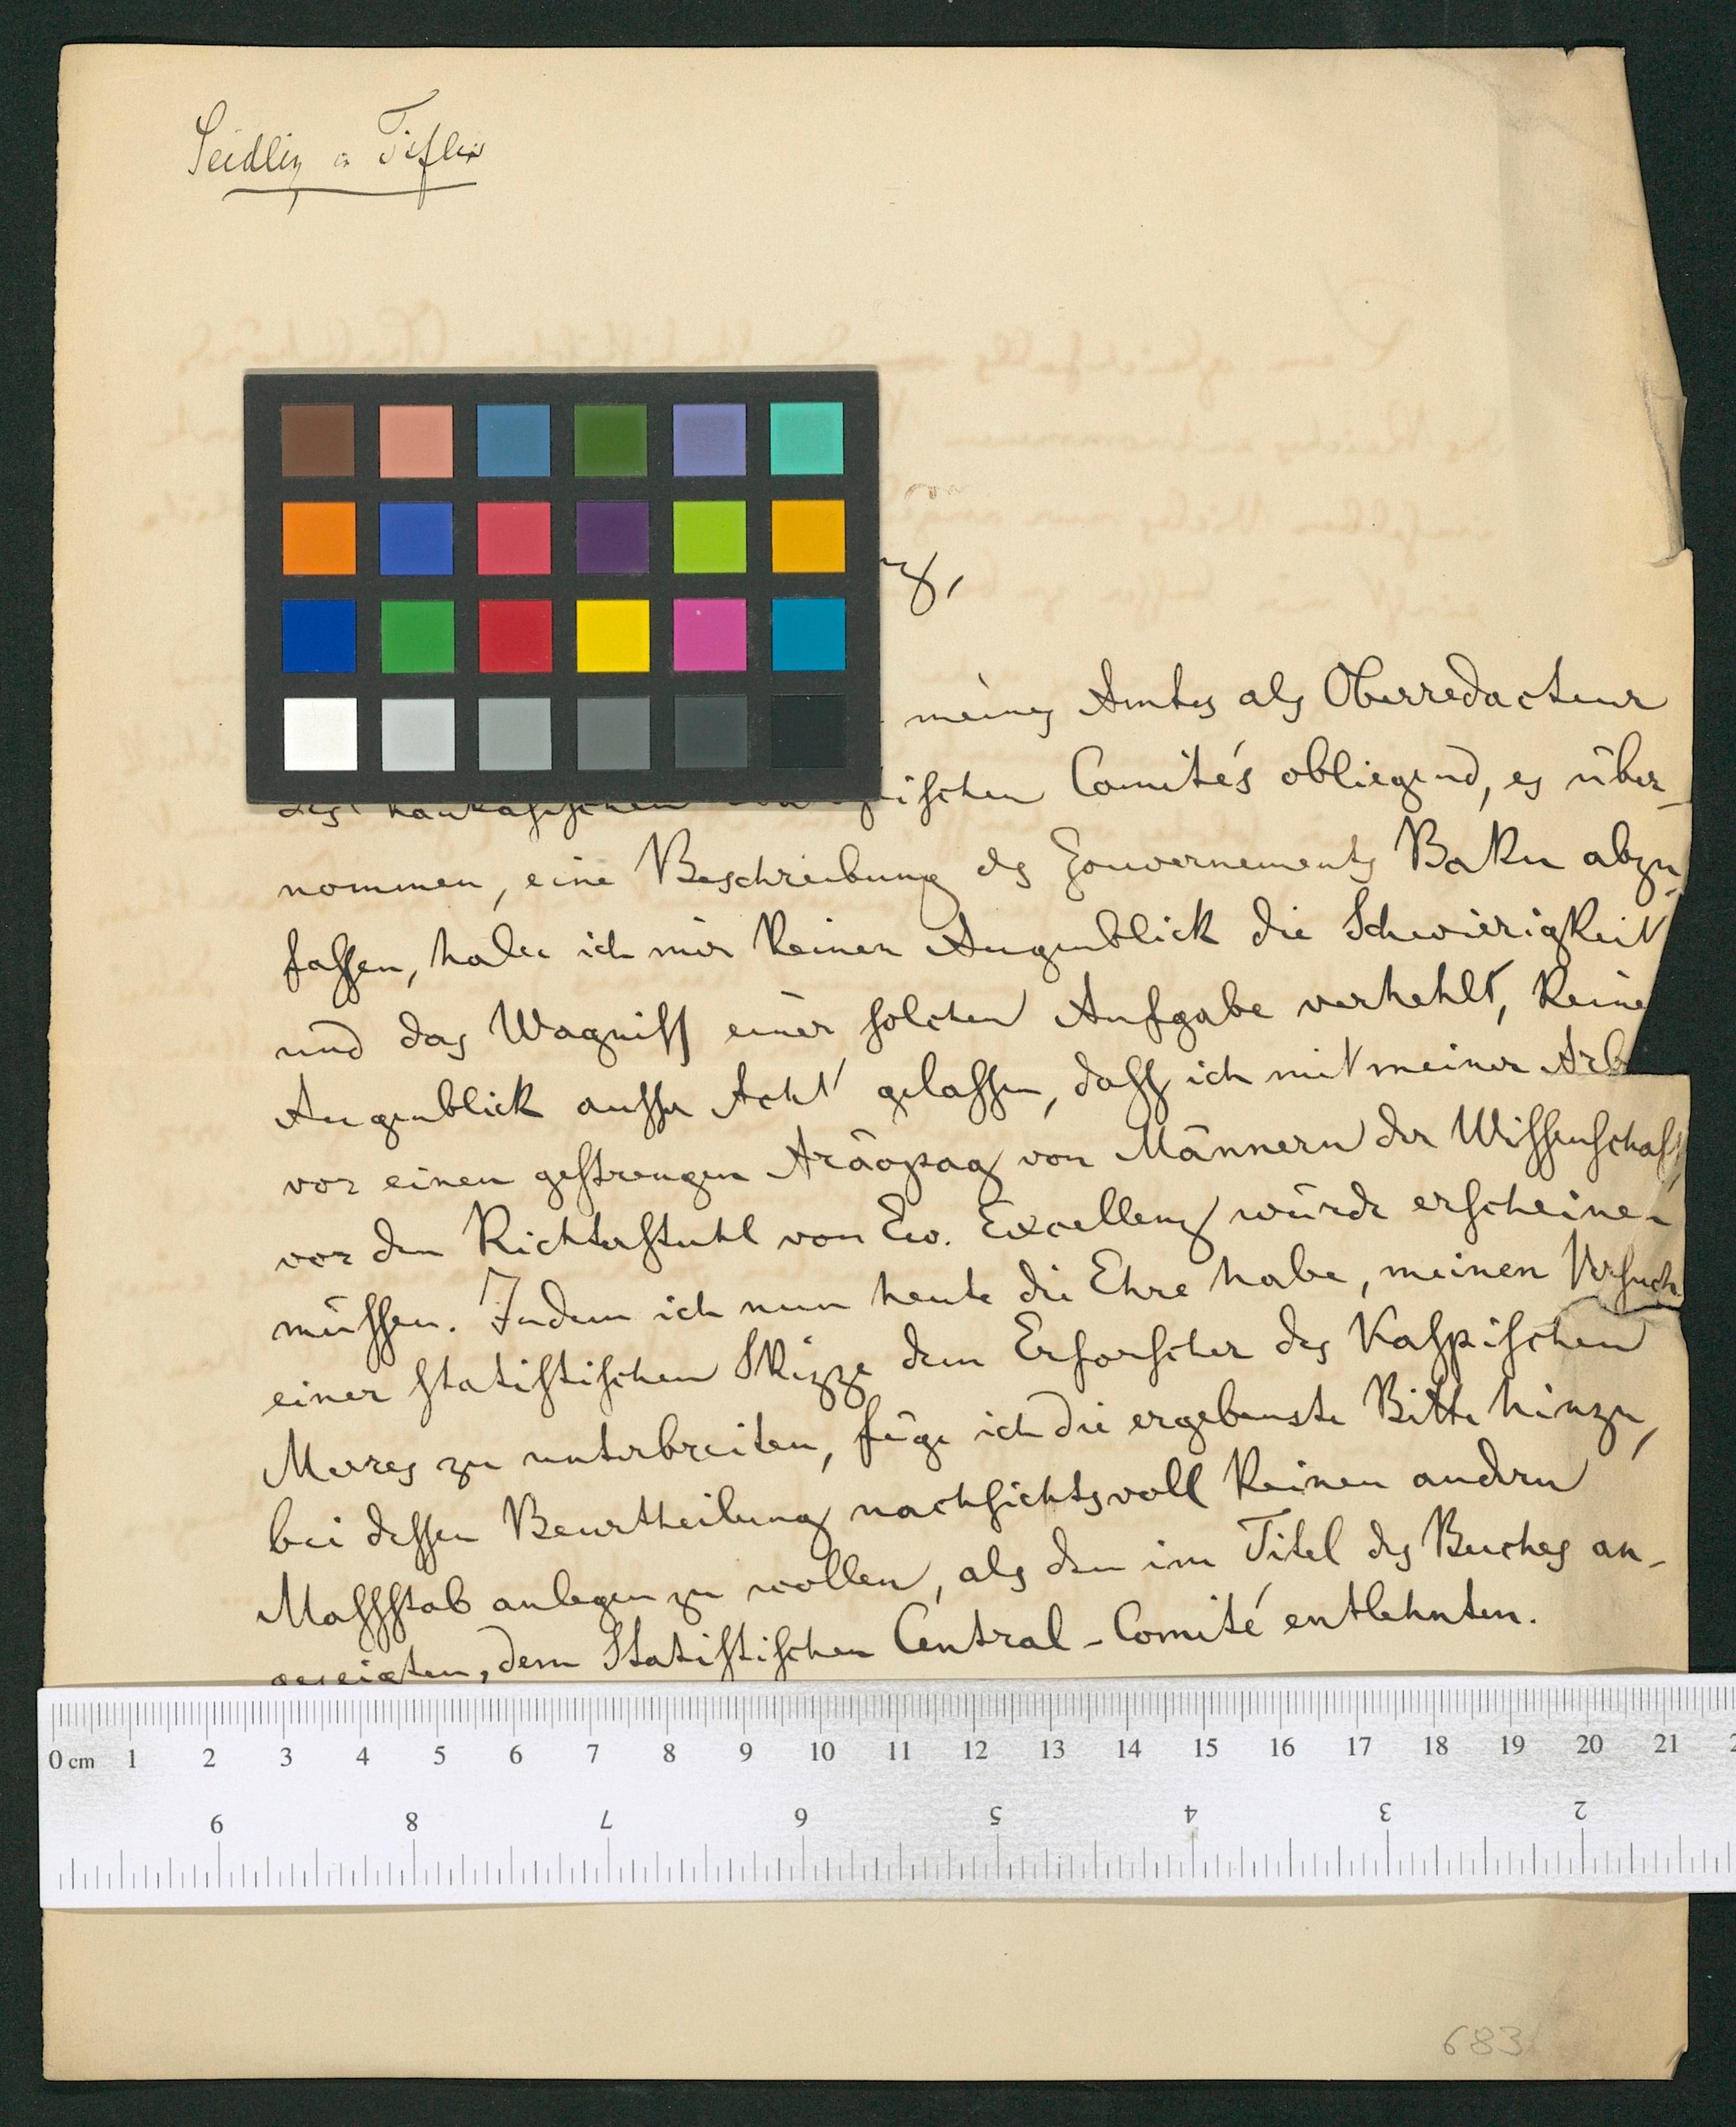 Seidliz a Tiflis
meines Amtes als Oberredacteur
des kaukasischen ischen Comités obliegend, es über-
nommen, eine Beschreibung des Gouvernements Baku abzu-
fassen, habe ich mir keinen Augenblick die Schwierigkeit
und das Wagniss einer solchen Aufgabe verhehlt, keine
Augenblick ausser Acht gelassen, dass ich mit meiner Arb
vor einen gestrengen Aräopag von Männern der Wissenschaft,
vor den Richterstuhl von Ew. Excellenz würde erscheinen
müssen. Indem ich nun heute die Ehre habe, meinen Versuch
einer statistischen Skizze dem Erforscher des Kaspischen
Meeres zu unterbreiten, füge ich die ergebenste Bitte hinzu,
bei dessen Beurtheilung nachsichtsvoll keinen andern
Massstab anlegen zu wollen, als den im Titel des Buches an-
gezeigten, dem Statistischen Central-Comité entlehnten.
0 cm 1 2 3 4 5 6 7 8 9 10 11 12 13 14 15 16 17 18 19 20 21
9 8 7 6 5 4 3 2
683